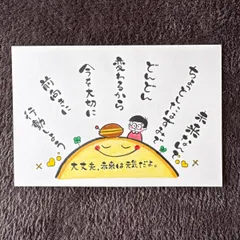 未来は
ちょっとたはずみで
どんどん
変わるから
今を大切に
前向きに
行動しよう
大丈夫、未来は元気だよ。